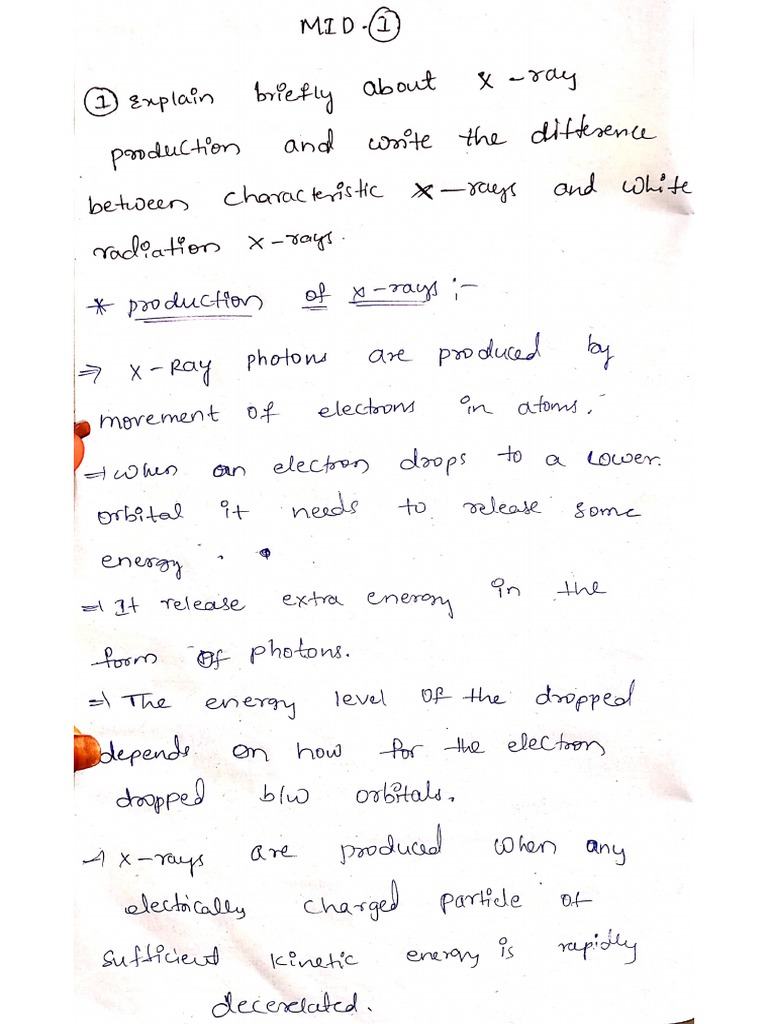 MID-①
① Explain briefly about X-ray
production and write the difference
between characteristic X-rays and white
radiation X-rays.
* production of x-rays :-
⇒ X-Ray photons are produced by
movement of electrons in atoms.
⇒ When an electron drops to a lower.
orbital it needs to release some
energy.
⇒ It release extra energy in the
form of photons.
⇒ The energy level of the dropped
depends on how for the electron
dropped b/w orbitals.
→ X-rays are produced when any
electrically charged particle of
sufficient kinetic energy is rapidly
decerelated.